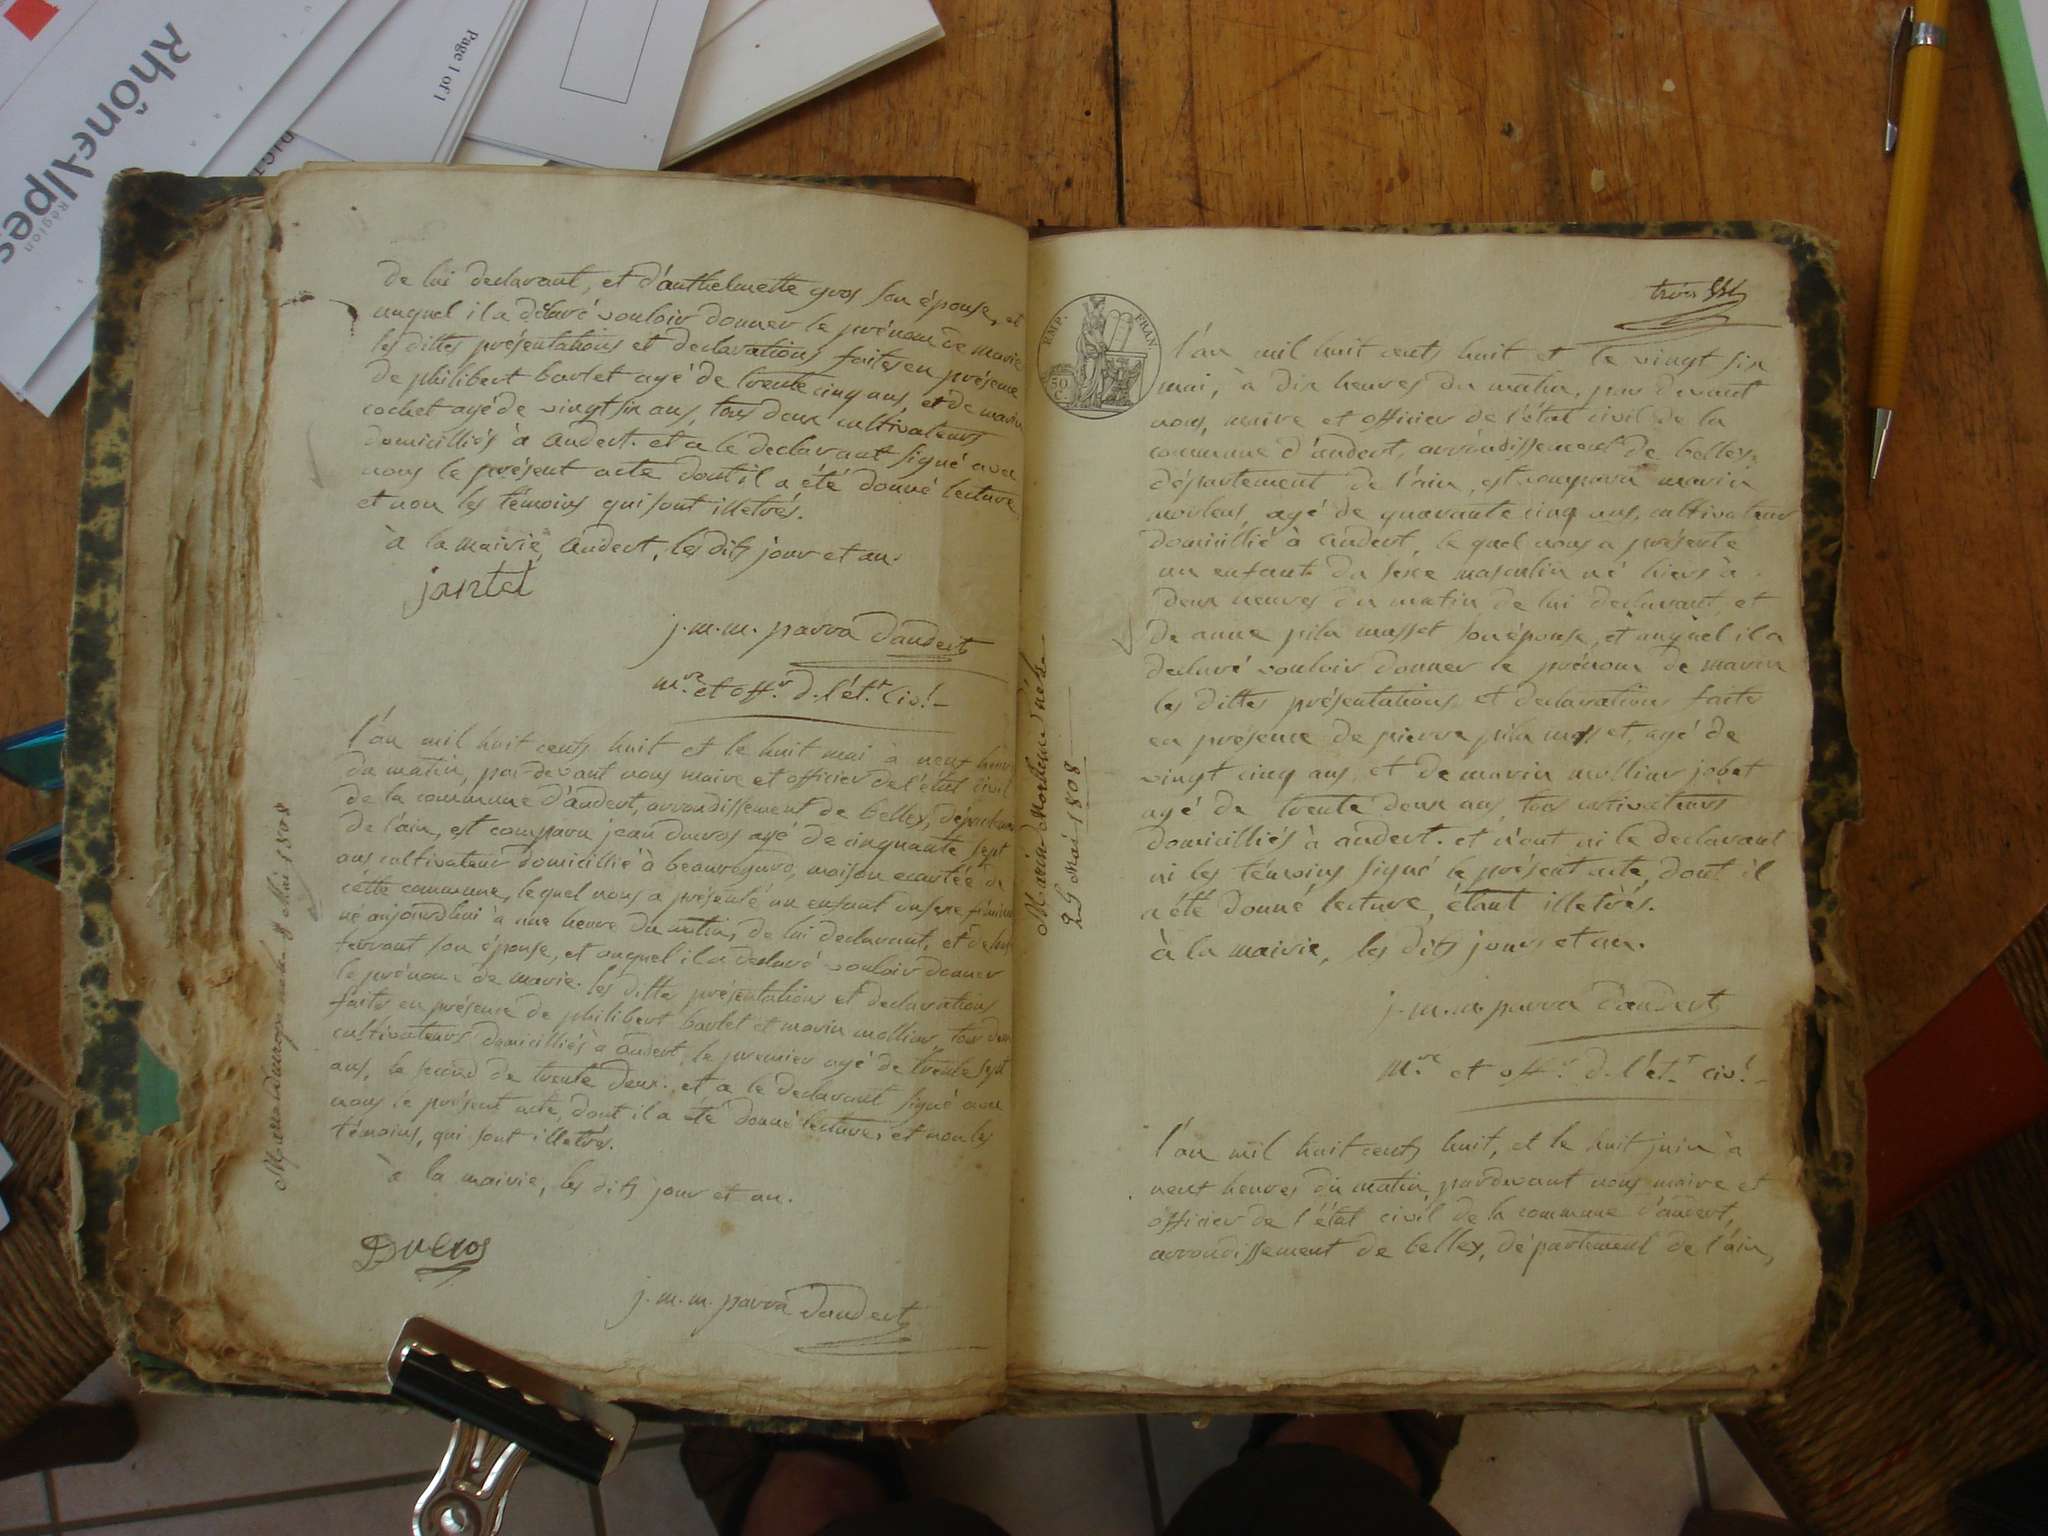 RhôneAlpes
Région
Page 1 of 1
de lui declarant, et d'anthelmette gros son épouse, et
auquel il a déclaré vouloir donner le prénom de marie
les dittes présentations et declarations faites en présence
de philibert barlet agé de trente cinq ans, et de marin
cochet agé de vingt six ans, tous deux cultivateurs
domicilliés à andert. et a le declarant signé avec
nous le présent acte dont il a été donné lecture
et non les témoins qui sont illetrés.
à la mairie, andert, les dits jour et an.
j.m.m. parra d'andert
m.re et off.r d. l'ét.t civ.l
l'an mil huit cents huit et le huit mai à neuf heures
du matin, par devant nous maire et officier de l'état civil
de la commune d'andert, arrondissement de belley, département
de l'ain, est comparu jean ducros agé de cinquante sept
ans cultivateur domicillié à beauregard, maison ecartée de
cette commune, lequel nous a présenté un enfant du sexe féminin
né aujourdhui à une heure du matin, de lui declarant, et de
ferrant son épouse, et auquel il a declaré vouloir donner
le prénom de marie. les dittes présentations et declarations
faites en présence de philibert barlet et marin mollier, tous deux
cultivateurs domicilliés à andert, le premier agé de trente sept
ans, le second de trente deux. et a le declarant signé avec
nous le présent acte, dont il a été donné lecture, et non les
témoins, qui sont illetrés.
à la mairie, les dits jour et an.
Ducros
j.m.m. parra d'andert
Mai 1808
EMP. FRAN.
50
C.
trois
l'an mil huit cents huit et le vingt six
mai, à dix heures du matin, par devant
nous, maire et officier de l'état civil de la
commune d'andert, arrondissement de belley,
département de l'ain, est comparu marin
morlens, agé de quarante cinq ans, cultivateur
domicillié à andert, le quel nous a présenté
un enfant du sexe masculin né hiers à
deux heures du matin de lui declarant, et
de anne pila masset son épouse, et auquel il a
declaré vouloir donner le prénom de marin
les dittes présentations et declarations faites
en présence de pierre pila masset, agé de
vingt cinq ans, et de marin mollier jobet
agé de trente deux ans, tous cultivateurs
domicilliés à andert. et n'ont ni le declarant
ni les témoins signé le présent acte, dont il
a été donné lecture, étant illetrés.
à la mairie, les dits jour et an.
j.m.m. parra d'andert
m.re et off.r d. l'ét.t civ.l
Marin
25 Mai 1808
l'an mil huit cents huit, et le huit juin à
neuf heures du matin, pardevant nous maire et
officier de l'état civil de la commune d'andert,
arrondissement de belley, département de l'ain,